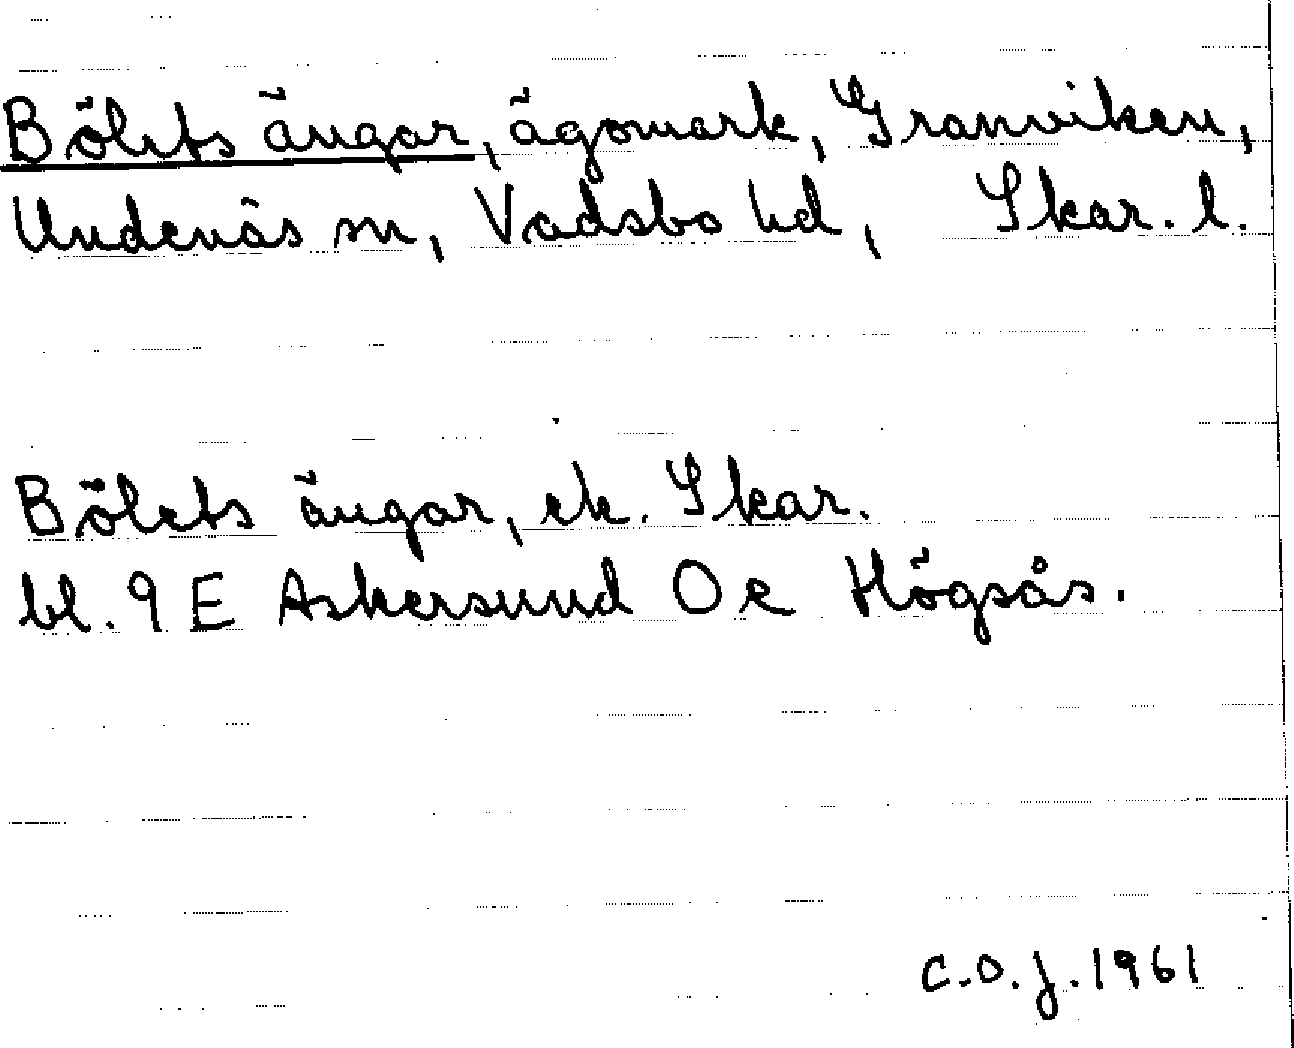 Bölets ängar, ägomark, Granviken,
Undenäs sn, Vadsbo hd, Skar. l.
Bölets ängar, ek. Skar.
bl. 9 E Askersund O e Högsås.
C.O.J. 1961